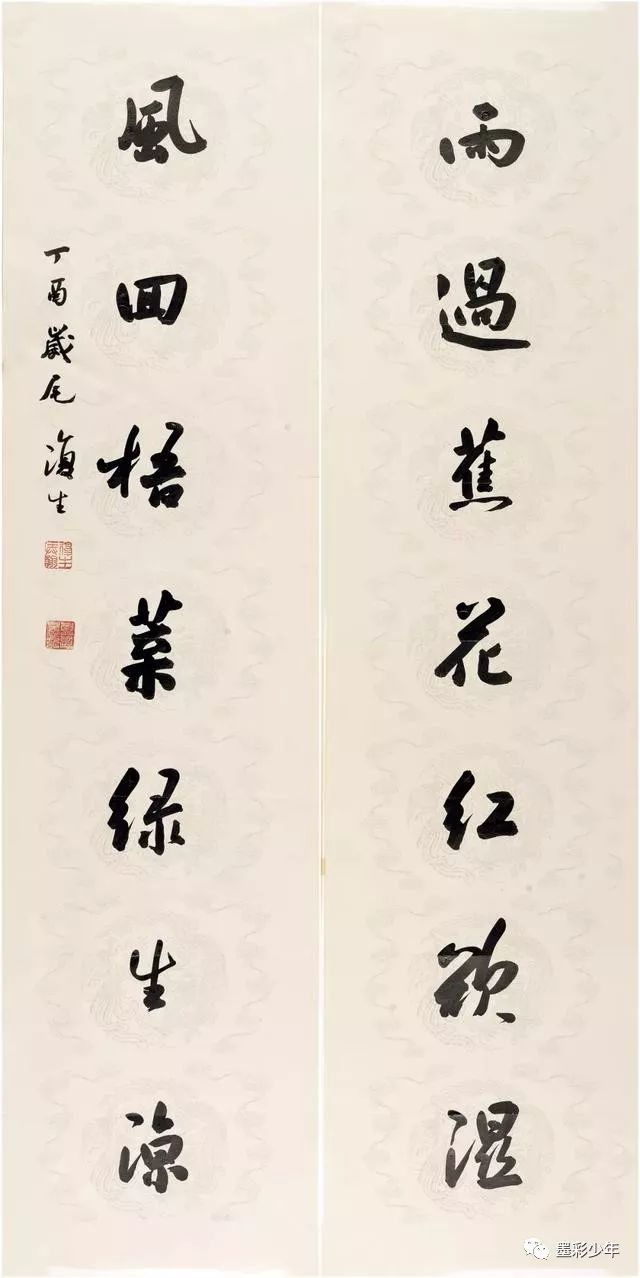 雨過蕉花红欲濕
風回梧葉绿生凉
丁酉歲尾 復生
墨彩少年